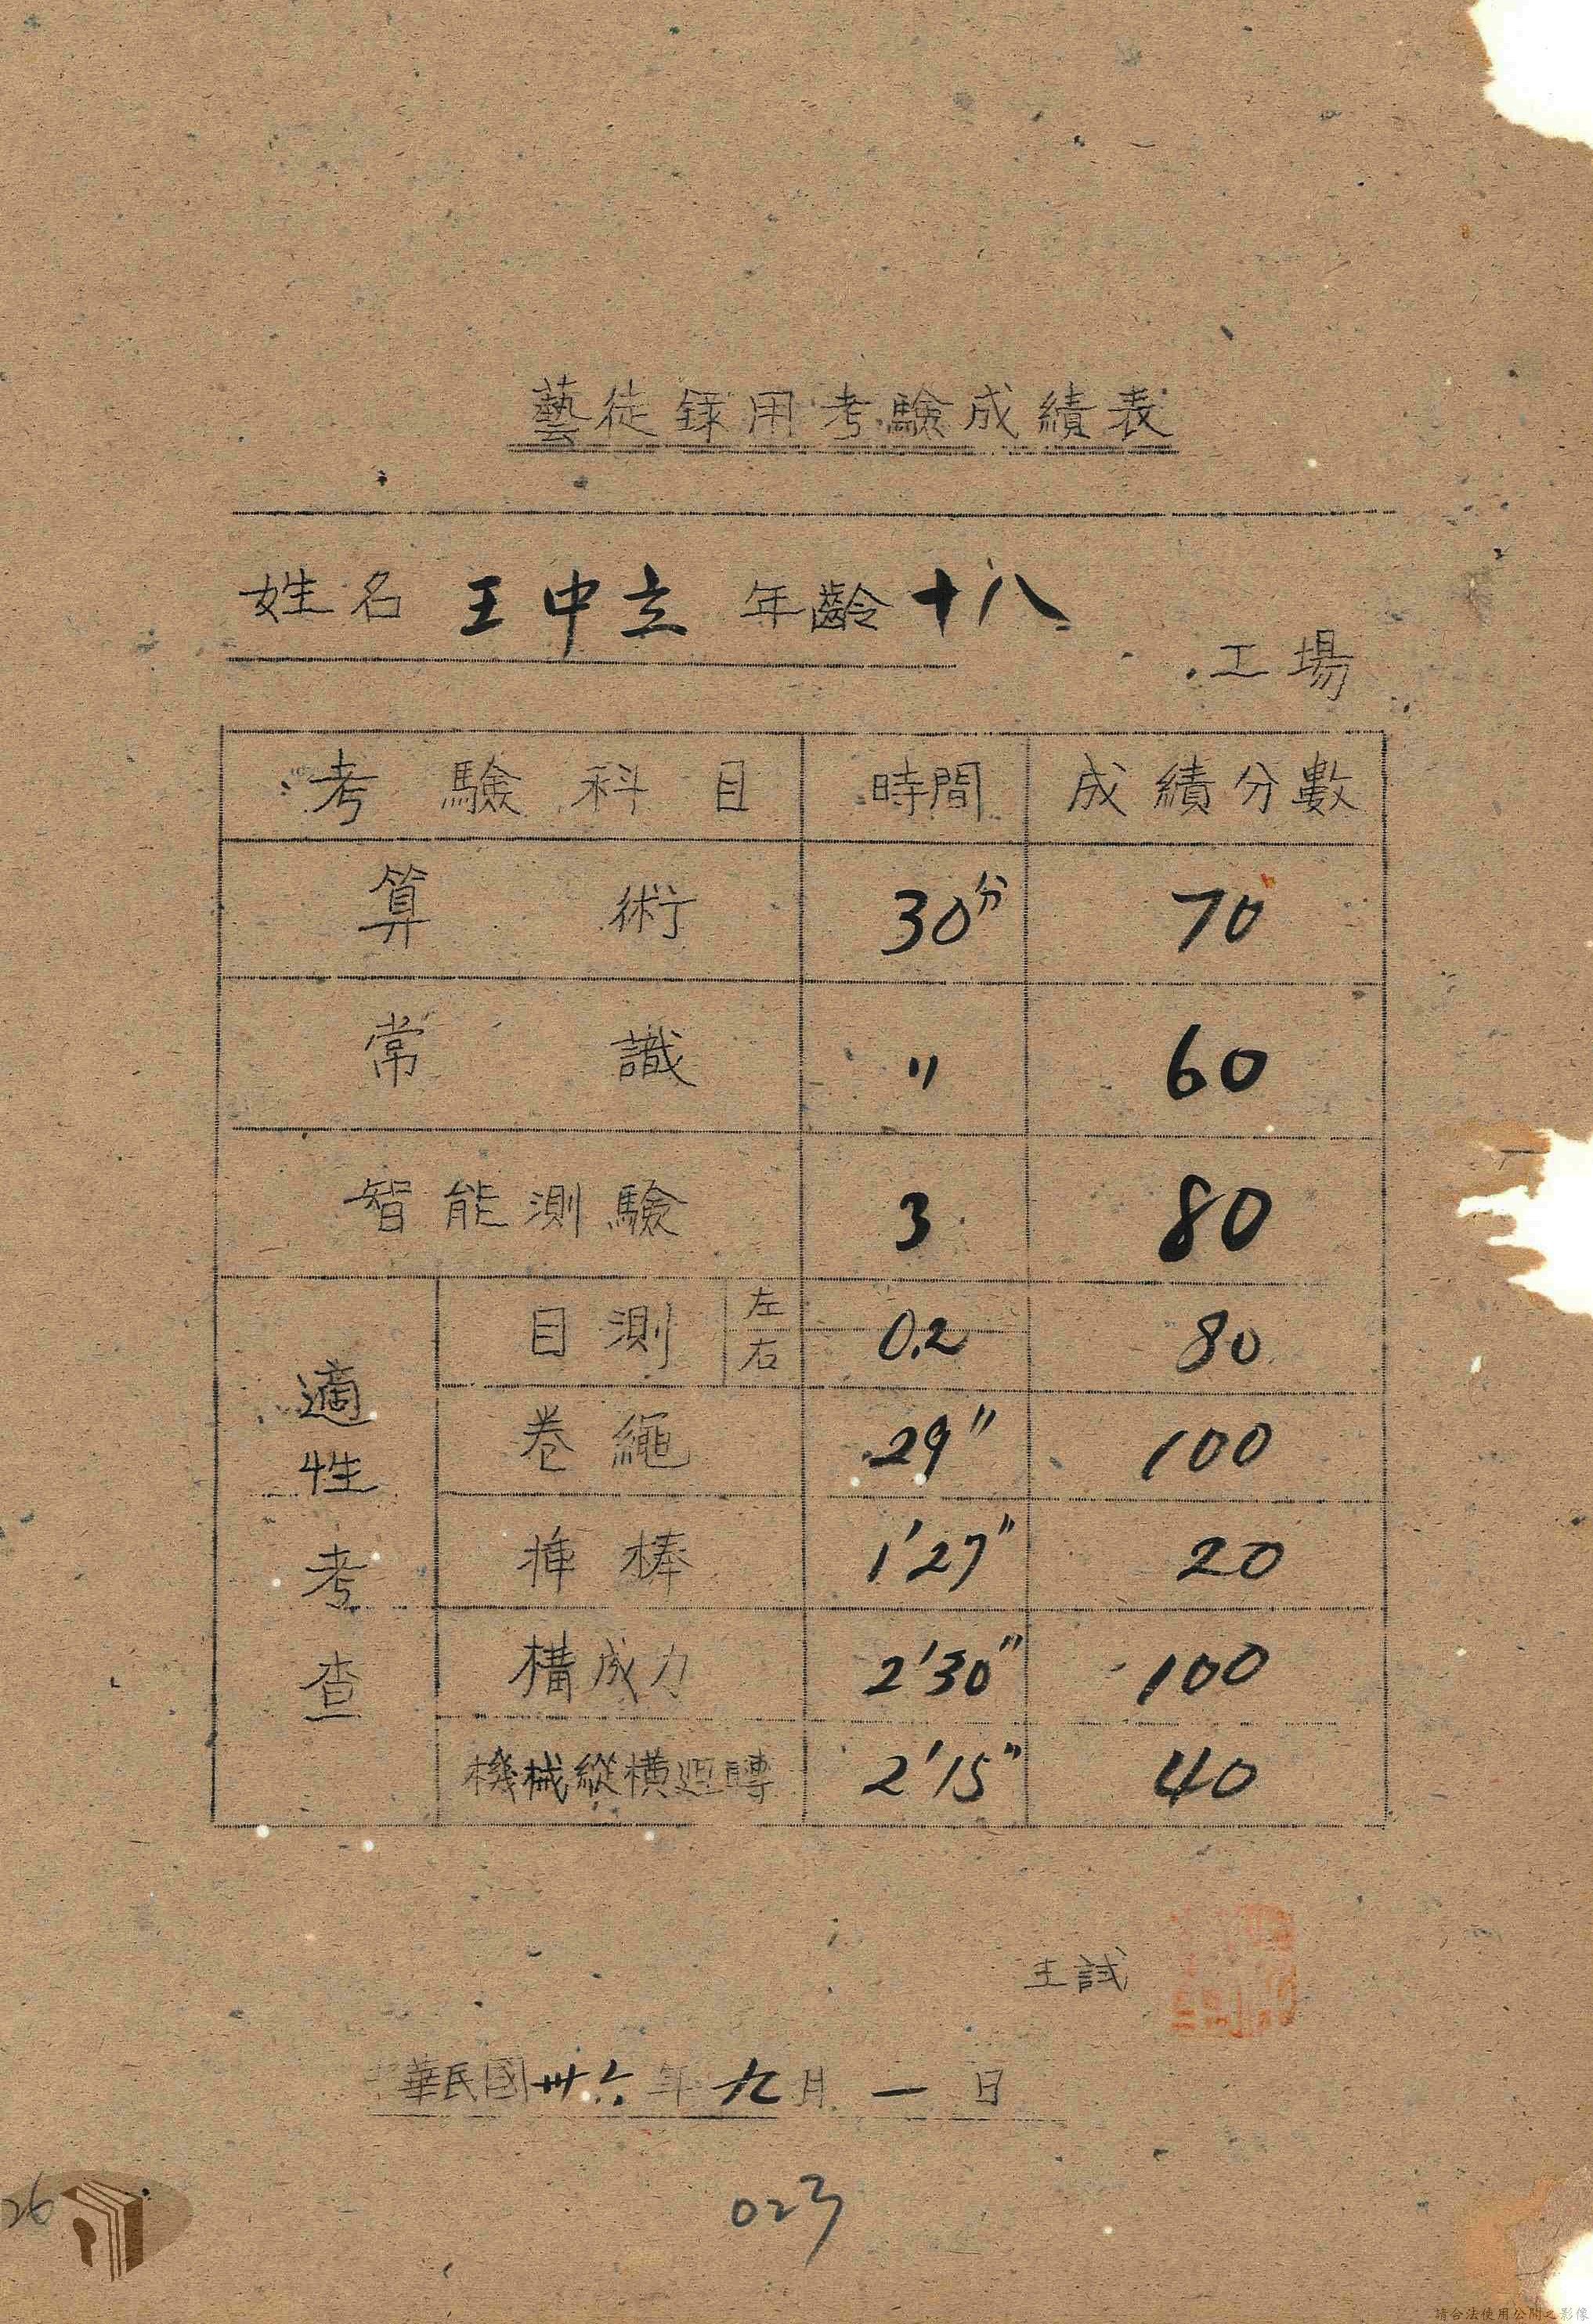 藝徒錄用考驗成績表
姓名 王中立 年齡 十八
工場
考驗科目 時間 成績分數
算術 30分 70
常識 〃 60
智能測驗 3 80
適性考查
目測 左 右 0.2 80
卷繩 29" 100
揷棒 1'27" 20
構成力 2'30" 100
機械縱橫迴轉 2'15" 40
主試
華民國卅六年九月一日
26
023
請合法使用公開之影像